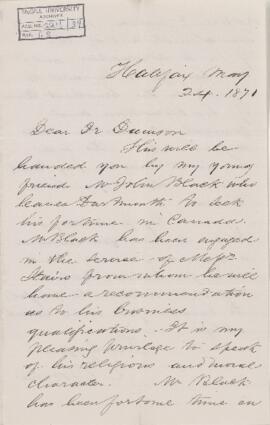 McGILL UNIVERSITY
ARCHIVES
ACC. NO.
REF.
Halifax May
24. 1871
Dear Dr Dawson
This will be
handed you by my young
friend Mr John Black who
leaves Dartmouth to seek
his fortune in Canada.
Mr Black has been engaged
in the service of Messrs
Stairs from whom he will
have a recommendation
as to his business
qualifications. It is my
pleasing privilege to speak
of his religious and moral
character. Mr Black
has been for some time an